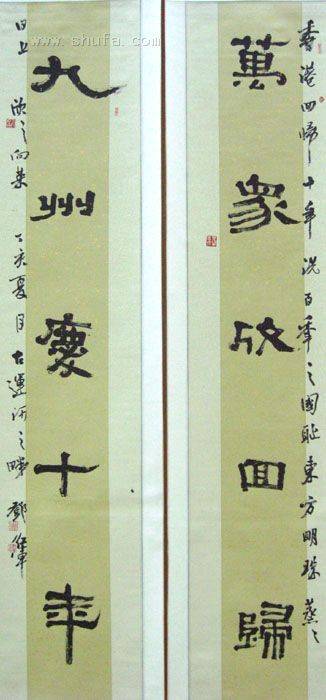 www.shufa.com
香港回歸十年洗百年之國恥東方明珠蒸々
萬眾欣回歸
九州慶十年
日上欣々向榮丁亥夏月古運河之畔鄧